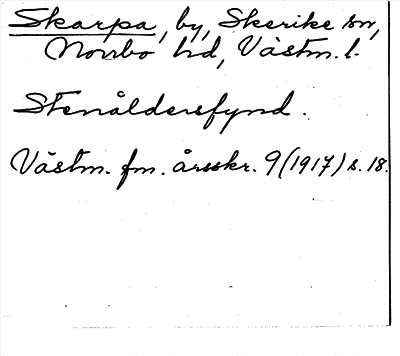 Skarpa, by, Skerike sn,
Norrbo hd, Västm. l.
Stenåldersfynd.
Västm. fm. årsskr. 9 (1917) s. 18.